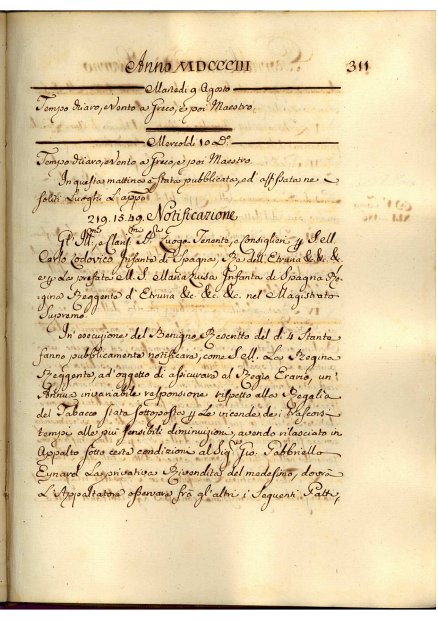 Anno MDCCCIII 311
Martedì 9 Agosto
Tempo chiaro, e Vento a Greco, e poi Maestro.
Mercoldì 10 D.º
Tempo chiaro, e Vento a Greco, e poi Maestro.
In questa mattina è stata pubblicata, ed affissata ne
soliti Luoghi L'app.
219.15.49. Notificazione
Gl' Ill. e Clariss. Sr. Luogo Tenente, e Consiglieri
Carlo Lodovico Infante di Spagna, Re dell'Etruria &c. &c. &c.
e p. La prefata M. S. Maria Luisa Infanta di Spagna Re-
gina Reggente d'Etruria &c. &c. &c. nel Magistrato
Supremo.
In esecuzione del Benigno Rescritto del dì 4 Stante
fanno pubblicamente notificare, come S. M. La Regina
Reggente, ad oggetto di assicurare al Regio Erario, un'
Annua invariabile responsione rispetto alla Regalia
del Tabacco stata sottoposta p. Le vicende de i trascorsi
tempi alle più sensibili diminuzioni, avendo rilasciato in
Appalto sotto certe condizioni al Sig. Gio. Gabbriello
Eynard La privativa Rivendita del medesimo, dovrà
L'Appaltatore osservare frà gl'altri i seguenti Patti,